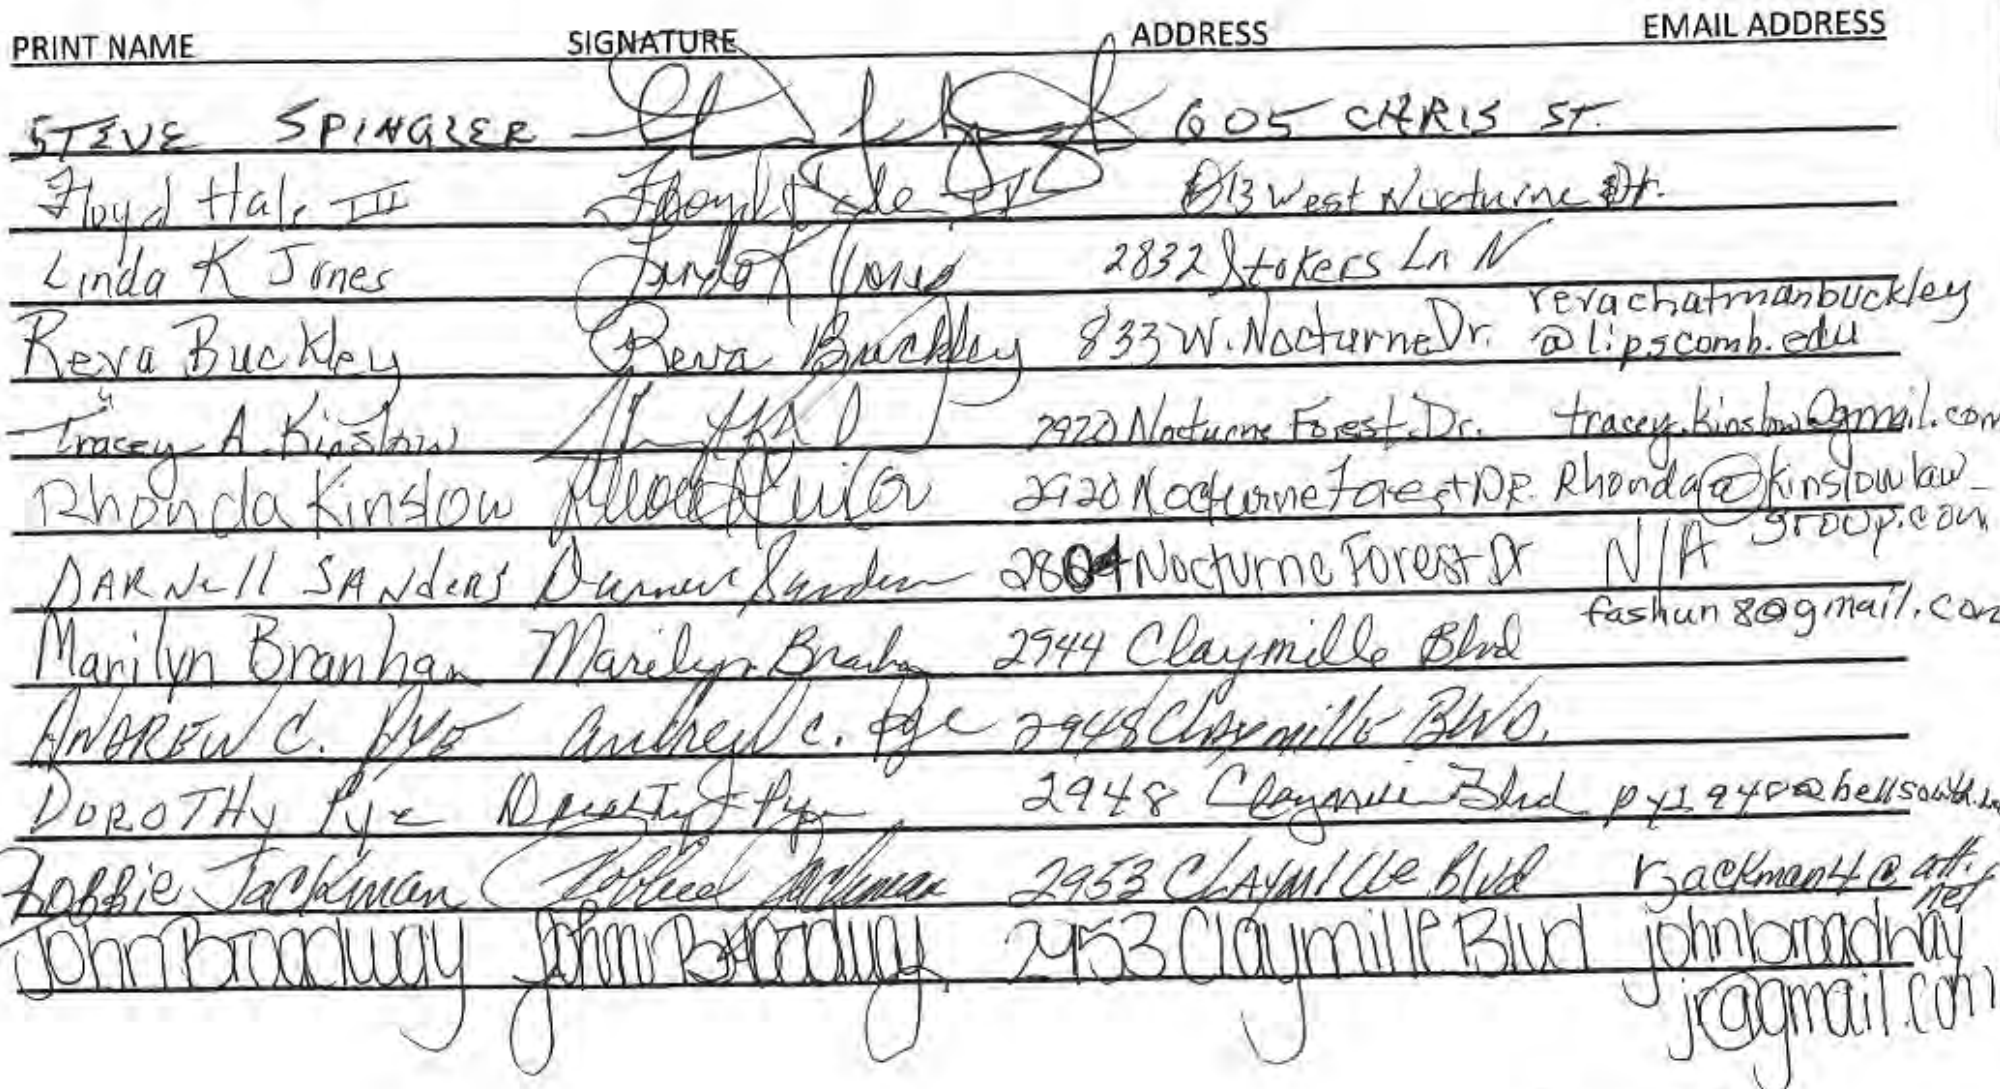 PRINT NAME SIGNATURE ADDRESS EMAIL ADDRESS
STEVE SPINGLER 605 CHRIS ST.
Floyd Hale III Floyd Hale III 813 West Nocturne Dr.
Linda K Jones Linda K Jones 2832 Stokers Ln N
Reva Buckley Reva Buckley 833 W. Nocturne Dr. revachatmanbuckley
@lipscomb.edu
Tracey A. Kinslow 2920 Nocturne Forest Dr. tracey.kinslow@gmail.com
Rhonda Kinslow 2920 Nocturne Forest DR. Rhonda@kinslowlaw
group.com
DARNell SANders Darnell Sanders 2804 Nocturne Forest Dr N/A
Marilyn Branham Marilyn Branham 2944 Claymille Blvd fashun8@gmail.com
ANDREW C. PYE Andrew C. Pye 2948 Claymille BLVD.
DOROTHy Pye Dorothy J Pye 2948 Claymille Blvd
Robbie Jackman Robbie Jackman 2953 CLAYMILLe Blvd rjackman4@att.
net
John Broadway John Broadway 2953 Claymille Blvd johnbroadway
jr@gmail.com